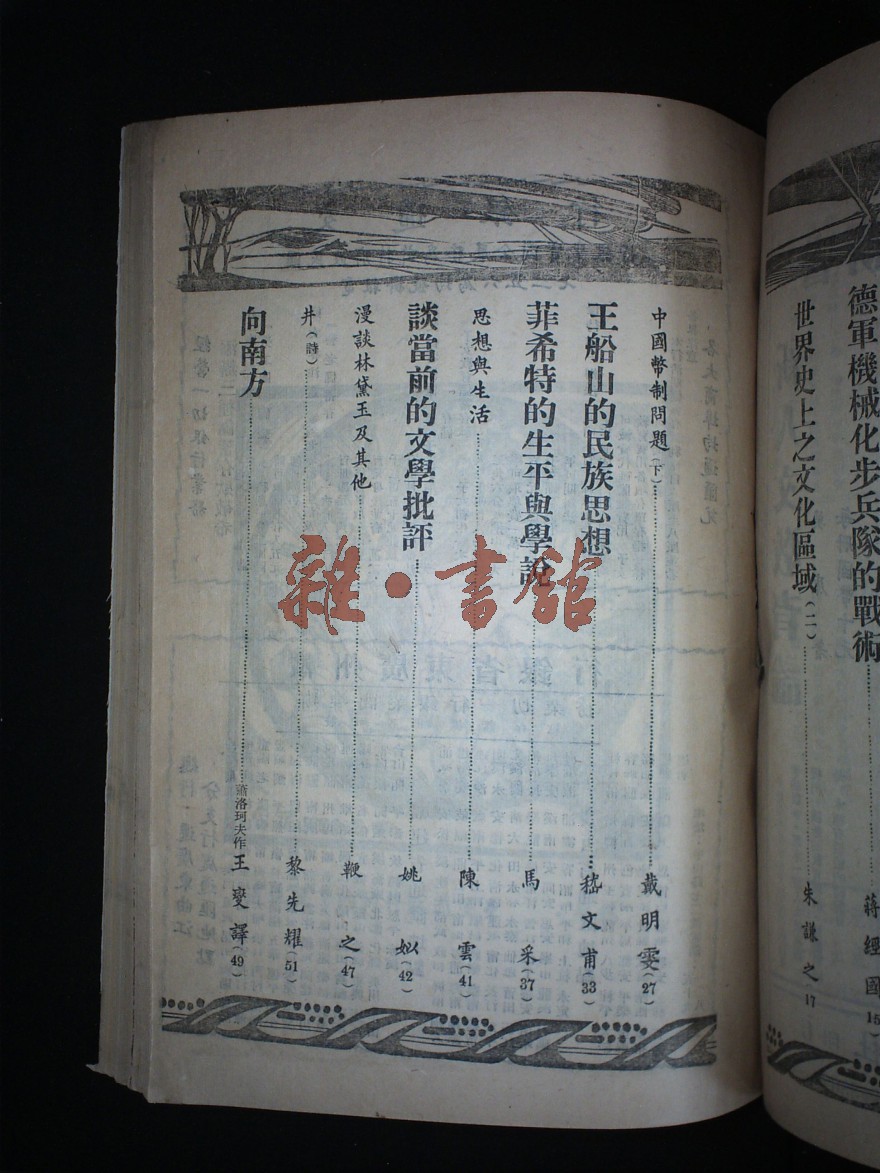 德軍機械化步兵隊的戰術 蔣經國 15
世界史上之文化區域(二) 朱謙之 17
中國幣制問題(下) 戴明雯(27)
王船山的民族思想 嵇文甫(33)
菲希特的生平與學說 馬采(37)
思想與生活 陳雲(41)
談當前的文學批評 姚姒(42)
漫談林黛玉及其他 鞭之(47)
井(詩) 黎先耀(51)
向南方 蕭洛珂夫作 王燮譯(49)
雜·書館